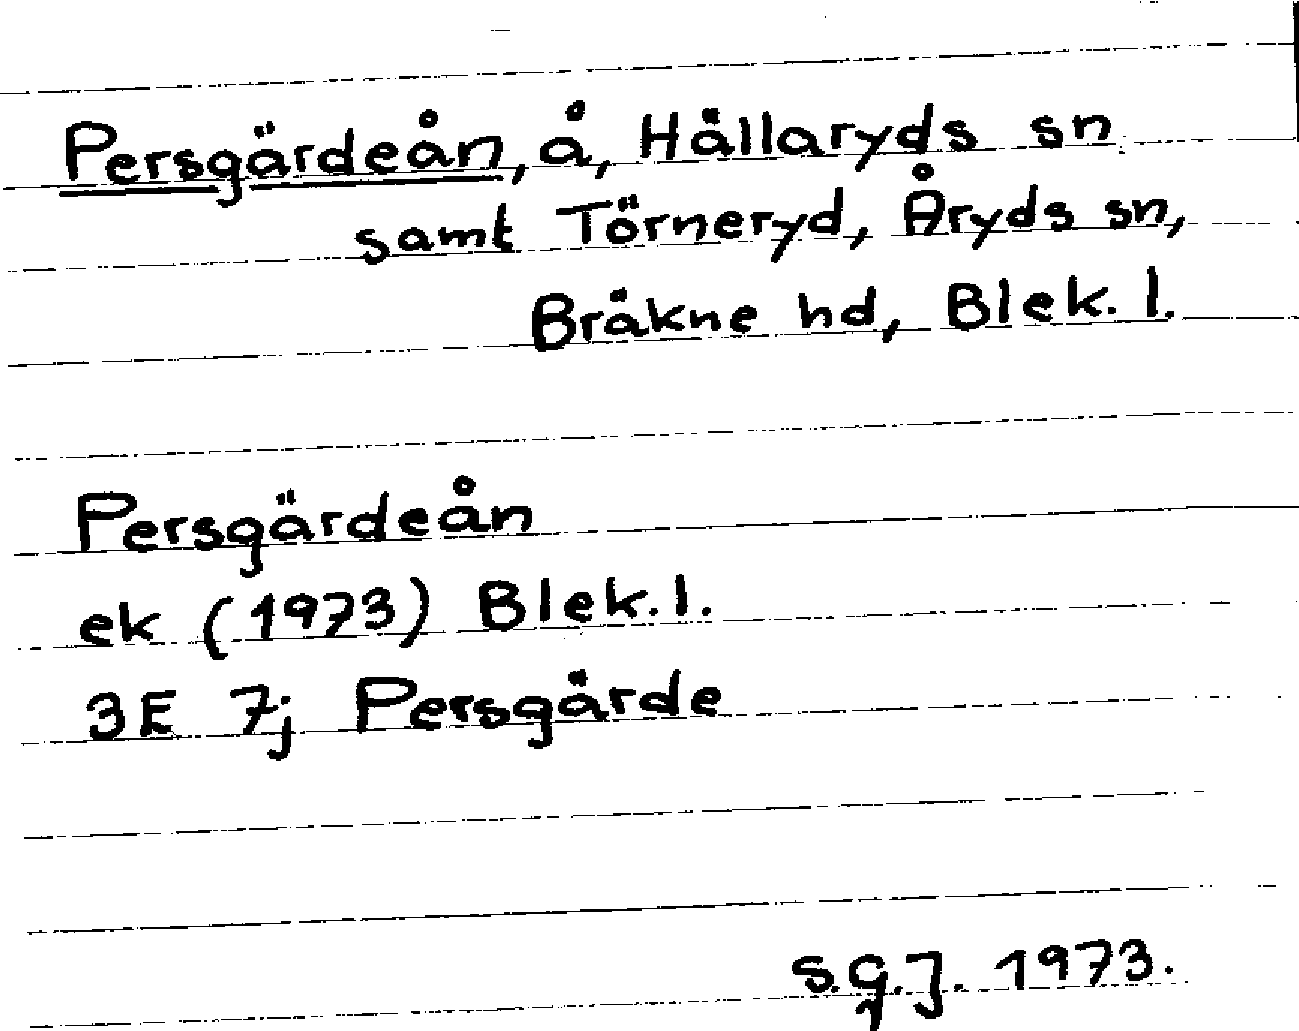 Persgärdeån, å, Hällaryds sn
samt Törneryd, Åryds sn,
Bräkne hd, Blek. l.
Persgärdeån
ek (1973) Blek. l.
3E 7j Persgärde
S.G.J. 1973.